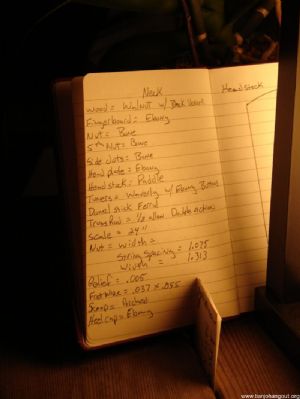 Neck
Head stock
wood = Walnut w/ Dark Veneer
Fingerboard = Ebony
Nut = Bone
5th Nut = Bone
Side dots = Bone
Head plate = Ebony
Head stock = Paddle
Tuners = Waverly w/ Ebony Buttons
Dowel stick Ferrol
Truss Rod = Double Action
Scale = 24"
Nut = width =
String Spacing = 1.035
Width = 1.313
Relief = .005
Fret wire = .037 x .055
Scoop = Arched
Heel cap = Ebony
www.banjohangout.org